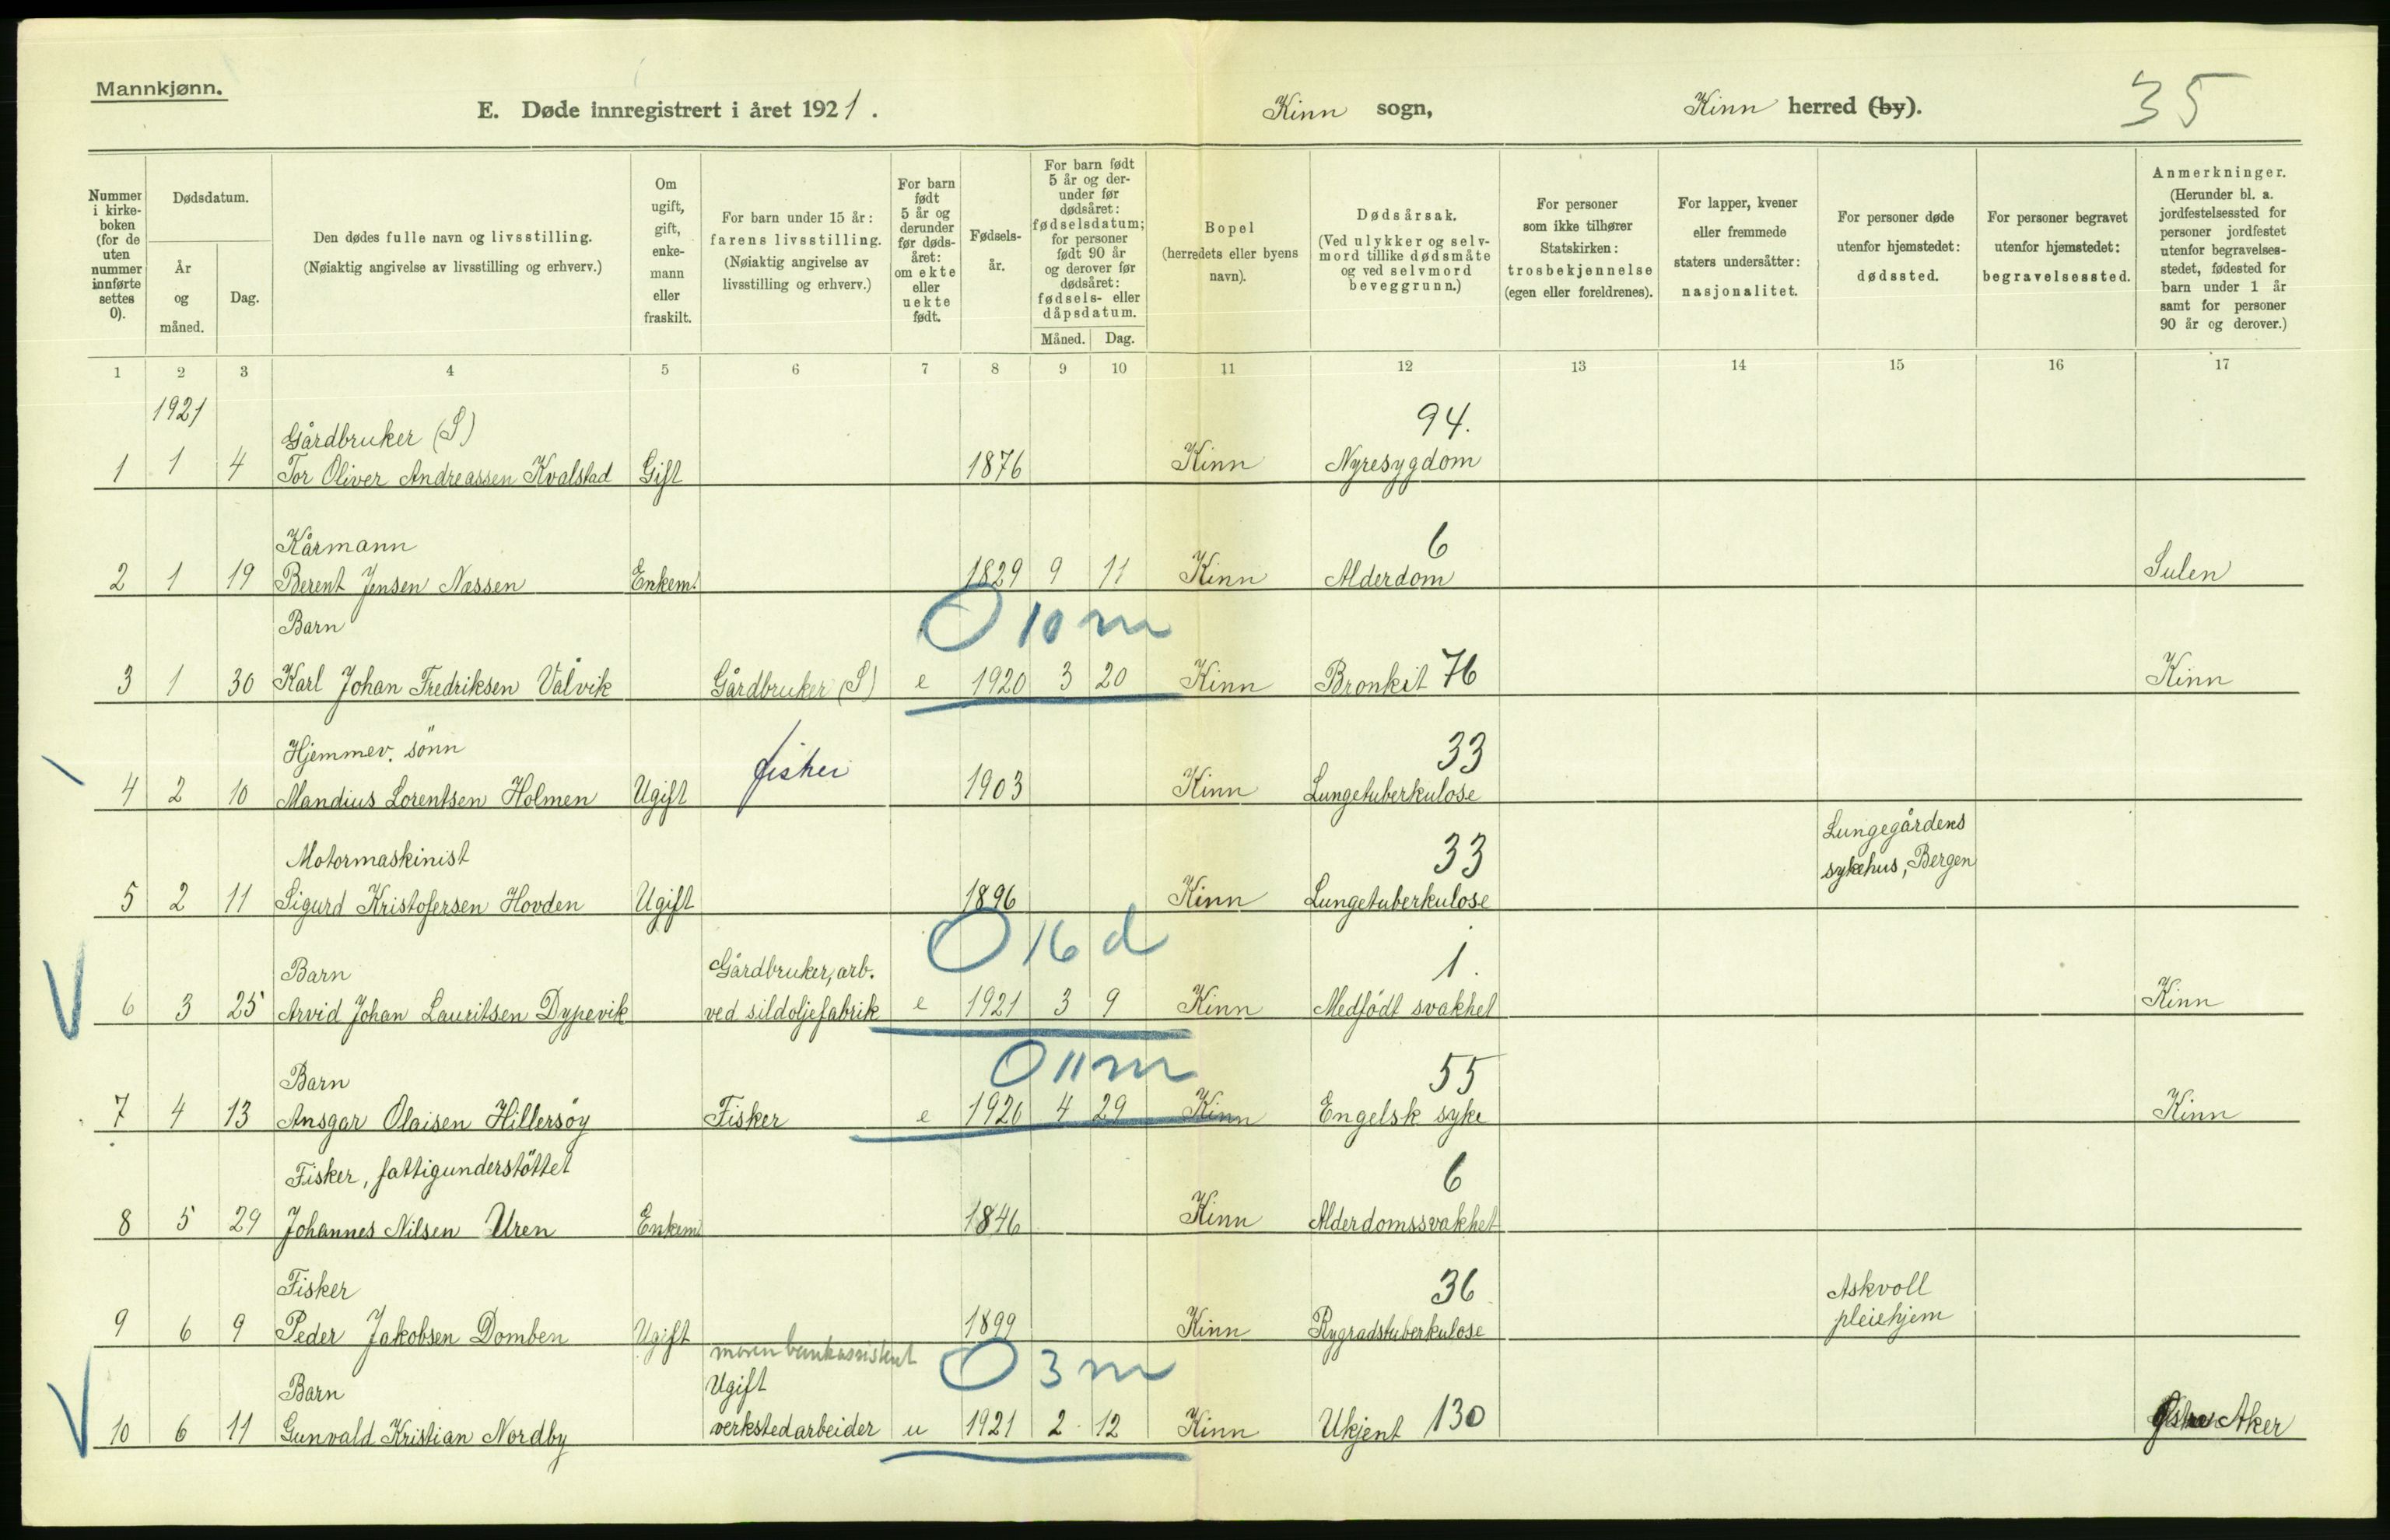 Mannkjønn.
E. Døde innregistrert i året 1921.
Kinn sogn,
Kinn herred (by).
35
Nummer i kirke-boken (for de uten nummer innførte settes 0).
Dødsdatum.
År og måned.
Dag.
Den dødes fulle navn og livsstilling.
(Nøiaktig angivelse av livsstilling og erhverv.)
Om ugift, gift, enke-mann eller fraskilt.
For barn under 15 år: farens livsstilling.
(Nøiaktig angivelse av livsstilling og erhverv.)
For barn født 5 år og derunder før døds-året: om ekte eller uekte født.
Fødsels-år.
For barn født 5 år og der-under før dødsåret: fødselsdatum; for personer født 90 år og derover før dødsåret: fødsels- eller dåpsdatum.
Måned. Dag.
Bopel
(herredets eller byens navn).
Dødsårsak.
(Ved ulykker og selv-mord tillike dødsmåte og ved selvmord beveggrunn.)
For personer som ikke tilhører Statskirken: trosbekjennelse (egen eller foreldrenes).
For lapper, kvener eller fremmede staters undersåtter: nasjonalitet.
For personer døde utenfor hjemstedet: dødssted.
For personer begravet utenfor hjemstedet: begravelsessted.
Anmerkninger.
(Herunder bl. a. jordfestelsessted for personer jordfestet utenfor begravelses-stedet, fødested for barn under 1 år samt for personer 90 år og derover.)
1 2 3 4 5 6 7 8 9 10 11 12 13 14 15 16 17
1921
Gårdbruker (S) 94.
1 1 4 Tor Oliver Andreassen Kvalstad Gift 1876 Kinn Nyresygdom
Kårmann 6
2 1 19 Berent Jensen Nassen Enkem. 1829 9 11 Kinn Alderdom Sulen
Barn 0 10 m
3 1 30 Karl Johan Fredriksen Vålvik Gårdbruker (S) e 1920 3 20 Kinn Bronkit 76 Kinn
Hjemmev. sönn fisker 33
4 2 10 Mandius Lorentsen Holmen Ugift 1903 Kinn Lungetuberkulose
Motormaskinist 33 Lungegårdens sykehus, Bergen
5 2 11 Sigurd Kristofersen Hovden Ugift 1896 Kinn Lungetuberkulose
Barn Gårdbruker, arb. 0 16 d 1.
6 3 25 Arvid Johan Lauritsen Dypevik ved sildoljefabrik e 1921 3 9 Kinn Medfödt svakhet Kinn
Barn 0 11 m 55
7 4 13 Ansgar Olaisen Hillersöy Fisker e 1920 4 29 Kinn Engelsk syke Kinn
Fisker, fattigunderstöttet 6
8 5 29 Johannes Nilsen Uren Enkem. 1846 Kinn Alderdomssvakhet
Fisker 36 Askvoll pleiehjem
9 6 9 Peder Jakobsen Domben Ugift 1899 Kinn Rygradstuberkulose
moren bankassistent 0 3 m
Barn Ugift
10 6 11 Gunvald Kristian Nordby verkstedarbeider u 1921 2 12 Kinn Ukjent 130 Aker